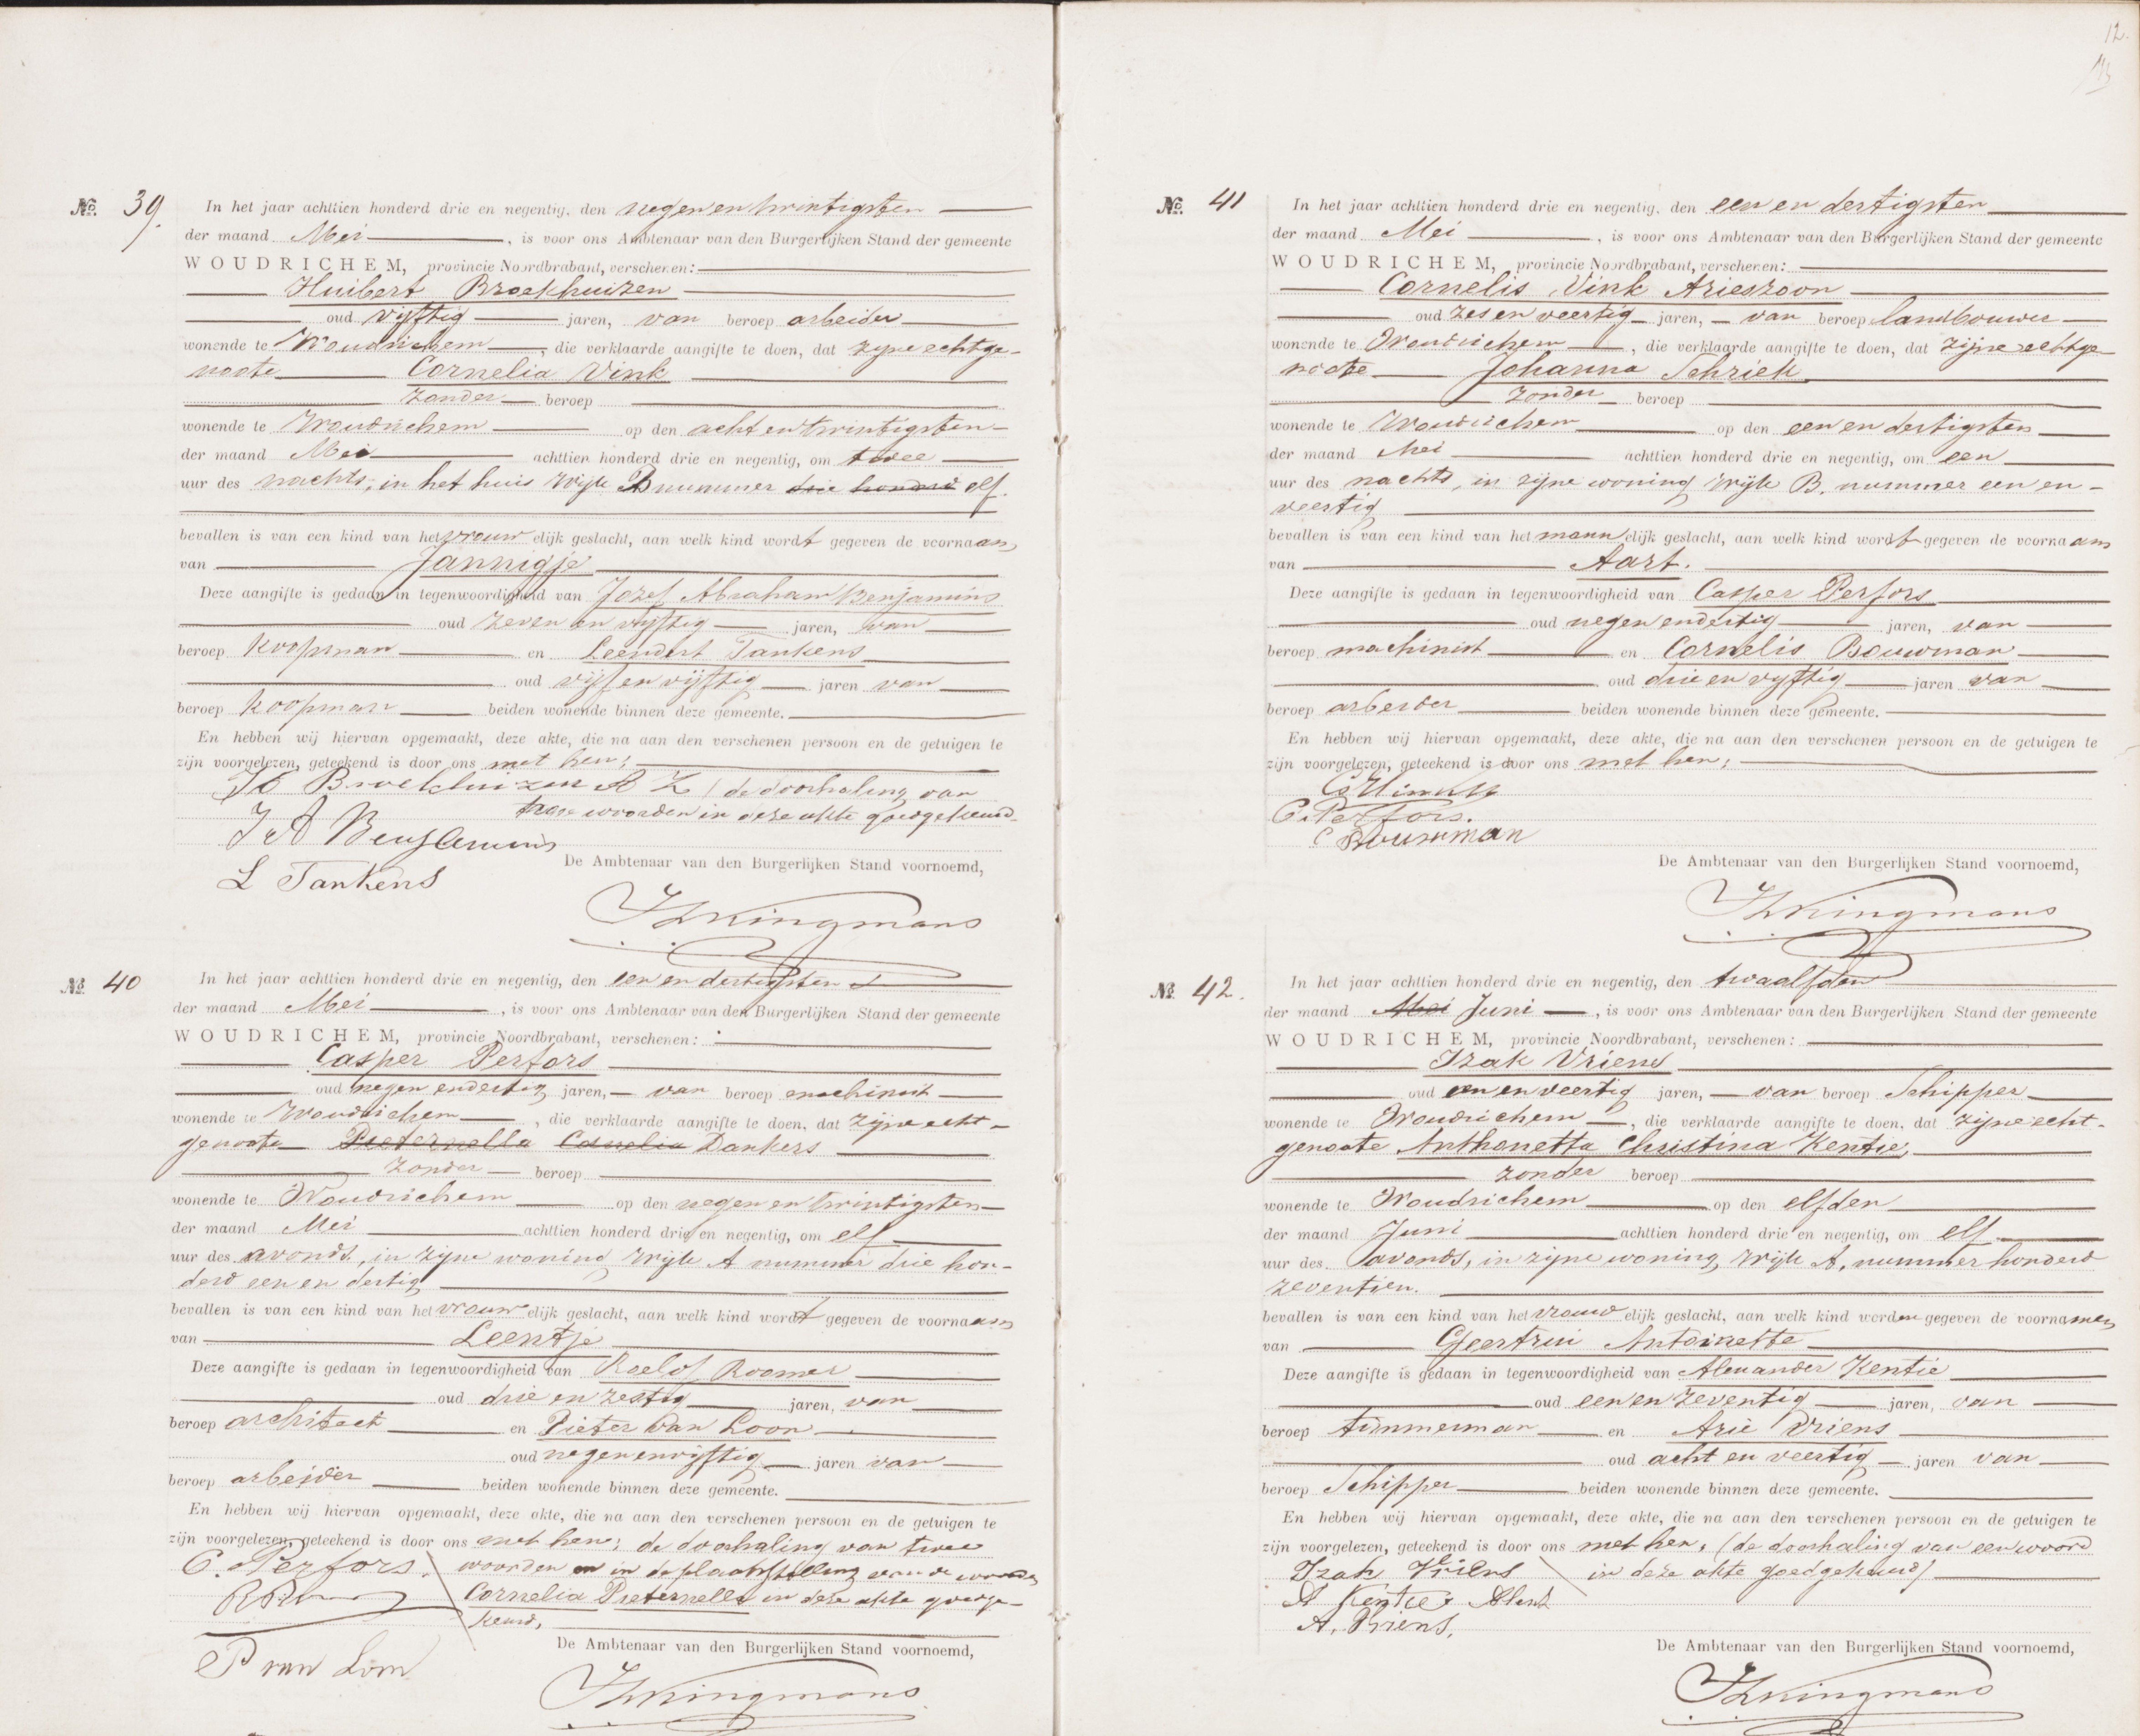 12.
No. 39. In het jaar achttien honderd drie en negentig, den negen en twintigsten
der maand Mei, is voor ons Ambtenaar van den Burgerlijken Stand der gemeente
WOUDRICHEM, provincie Noordbrabant, verschenen:
Huibert Broekhuizen
oud vijftig jaren, van beroep arbeider
wonende te Woudrichem, die verklaarde aangifte te doen, dat zijne echtge-
noote Cornelia Vink
zonder beroep
wonende te Woudrichem op den acht en twintigsten
der maand Mei achttien honderd drie en negentig, om twee
uur des nachts, in het huis Wijk B nummer drie honderd elf.
bevallen is van een kind van het vrouwelijk geslacht, aan welk kind wordt gegeven de voornaam
van Jannigje
Deze aangifte is gedaan in tegenwoordigheid van Jozef Abraham Benjamins
oud zeven en vijftig jaren, van
beroep koopman en Leendert Tankens
oud vijf en vijftig jaren van
beroep koopman beiden wonende binnen deze gemeente.
En hebben wij hiervan opgemaakt, deze akte, die na aan den verschenen persoon en de getuigen te
zijn voorgelezen, geteekend is door ons met hen;
H Broekhuizen A Z (de doorhaling van
twee woorden in deze akte goedgekeurd.
J A Benjamins
L Tankens
De Ambtenaar van den Burgerlijken Stand voornoemd,
Kingmans
No. 40 In het jaar achttien honderd drie en negentig, den een en dertigsten
der maand Mei, is voor ons Ambtenaar van den Burgerlijken Stand der gemeente
WOUDRICHEM, provincie Noordbrabant, verschenen:
Casper Perfors
oud negen en dertig jaren, van beroep machinist
wonende te Woudrichem, die verklaarde aangifte te doen, dat zijne echt-
genoote Pieternella Cornelia Dankers
zonder beroep
wonende te Woudrichem op den negen en twintigsten
der maand Mei achttien honderd drie en negentig, om elf
uur des avonds, in zijne woning Wijk A nummer drie hon-
derd een en dertig
bevallen is van een kind van het vrouwelijk geslacht, aan welk kind wordt gegeven de voornaam
van Leentje
Deze aangifte is gedaan in tegenwoordigheid van Roelof Roomer
oud drie en zestig jaren, van
beroep architect en Pieter van Loon
oud negen en vijftig jaren van
beroep arbeider beiden wonende binnen deze gemeente.
En hebben wij hiervan opgemaakt, deze akte, die na aan den verschenen persoon en de getuigen te
zijn voorgelezen, geteekend is door ons met hen; de doorhaling van twee
C. Perfors. woorden en in de plaatsstelling van de woorden
Cornelia Pieternella in deze akte goedge-
keurd,
P van Loon
De Ambtenaar van den Burgerlijken Stand voornoemd,
Kingmans
No. 41 In het jaar achttien honderd drie en negentig, den een en dertigsten
der maand Mei, is voor ons Ambtenaar van den Burgerlijken Stand der gemeente
WOUDRICHEM, provincie Noordbrabant, verschenen:
Cornelis Vink Arieszoon
oud zes en veertig jaren, van beroep landbouwer
wonende te Woudrichem, die verklaarde aangifte te doen, dat zijne echtge-
noote Johanna Schriek
zonder beroep
wonende te Woudrichem op den een en dertigsten
der maand Mei achttien honderd drie en negentig, om een
uur des nachts, in zijne woning Wijk B. nummer een en
veertig
bevallen is van een kind van het mannelijk geslacht, aan welk kind wordt gegeven de voornaam
van Aart.
Deze aangifte is gedaan in tegenwoordigheid van Casper Perfors
oud negen en dertig jaren, van
beroep machinist en Cornelis Bouwman
oud drie en vijftig jaren van
beroep arbeider beiden wonende binnen deze gemeente.
En hebben wij hiervan opgemaakt, deze akte, die na aan den verschenen persoon en de getuigen te
zijn voorgelezen, geteekend is door ons met hen;
C. Perfors.
C Bouwman
De Ambtenaar van den Burgerlijken Stand voornoemd,
Kingmans
No. 42. In het jaar achttien honderd drie en negentig, den twaalfden
der maand Mei Juni, is voor ons Ambtenaar van den Burgerlijken Stand der gemeente
WOUDRICHEM, provincie Noordbrabant, verschenen:
Izak Vriens
oud een en veertig jaren, van beroep Schipper
wonende te Woudrichem, die verklaarde aangifte te doen, dat zijne echt-
genoote Anthonetta Christina Kentie,
zonder beroep
wonende te Woudrichem op den elfden
der maand Juni achttien honderd drie en negentig, om elf
uur des avonds, in zijne woning, Wijk A, nummer honderd
zeventien.
bevallen is van een kind van het vrouwelijk geslacht, aan welk kind worden gegeven de voornamen
van Geertrui Antoinette
Deze aangifte is gedaan in tegenwoordigheid van Alexander Kentie
oud een en zeventig jaren, van
beroep timmerman en Arie Vriens
oud acht en veertig jaren van
beroep Schipper beiden wonende binnen deze gemeente.
En hebben wij hiervan opgemaakt, deze akte, die na aan den verschenen persoon en de getuigen te
zijn voorgelezen, geteekend is door ons met hen, (de doorhaling van een woord
Izak Vriens in deze akte goedgekeurd)
A Kentie
A. Vriens,
De Ambtenaar van den Burgerlijken Stand voornoemd,
Kingmans